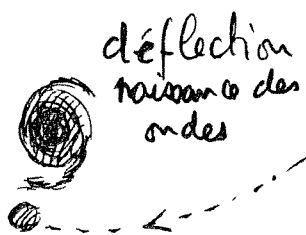 déflection
naissance des
ondes